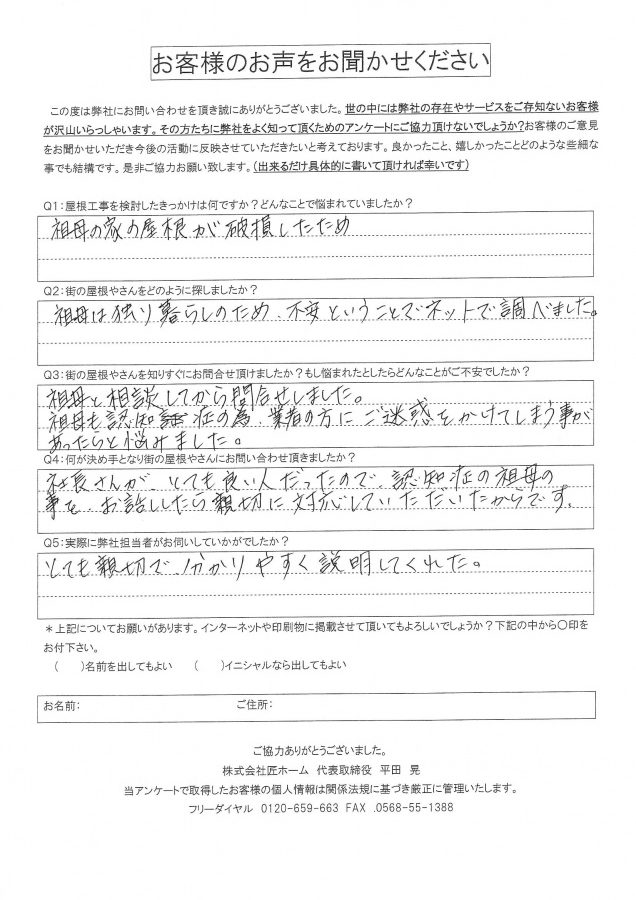 お客様のお声をお聞かせください
この度は弊社にお問い合わせを頂き誠にありがとうございました。世の中には弊社の存在やサービスをご存知ないお客様
が沢山いらっしゃいます。その方たちに弊社をよく知って頂くためのアンケートにご協力頂けないでしょうか?お客様のご意見
をお聞かせいただき今後の活動に反映させていただきたいと考えております。良かったこと、嬉しかったことどのような些細な
事でも結構です。是非ご協力お願い致します。(出来るだけ具体的に書いて頂ければ幸いです)
Q1:屋根工事を検討したきっかけは何ですか?どんなことで悩まれていましたか?
祖母の家の屋根が破損したため
Q2:街の屋根やさんをどのように探しましたか?
祖母は独り暮らしのため、不安ということでネットで調べました。
Q3:街の屋根やさんを知りすぐにお問合せ頂けましたか?もし悩まれたとしたらどんなことがご不安でしたか?
祖母と相談してから問合せしました。
祖母も認知症の為、業者の方にご迷惑をかけてしまう事が
あったらと悩みました。
Q4:何が決め手となり街の屋根やさんにお問い合わせ頂きましたか?
社長さんが、とても良い人だったので、認知症の祖母の
事を、お話ししたら親切に対応していただいたからです。
Q5:実際に弊社担当者がお伺いしていかがでしたか?
とても親切で、分かりやすく説明してくれた。
*上記についてお願いがあります。インターネットや印刷物に掲載させて頂いてもよろしいでしょうか?下記の中から〇印を
お付下さい。
( )名前を出してもよい ( )イニシャルなら出してもよい
お名前: ご住所:
ご協力ありがとうございました。
株式会社匠ホーム 代表取締役 平田 晃
当アンケートで取得したお客様の個人情報は関係法規に基づき厳正に管理いたします。
フリーダイヤル 0120-659-663 FAX .0568-55-1388